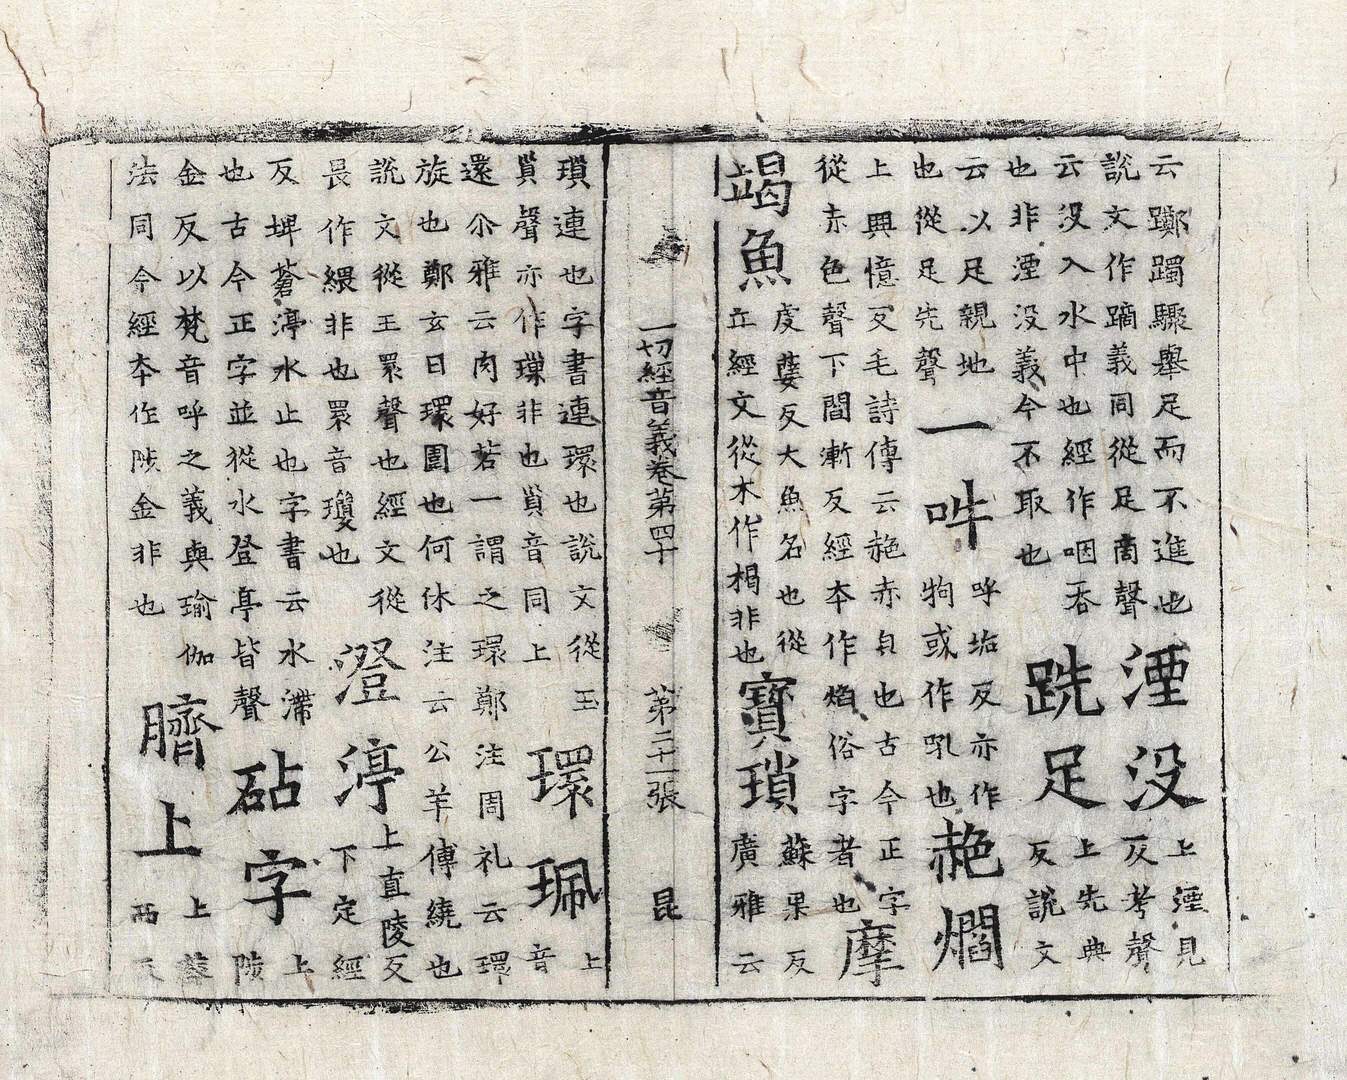 云躑躅驟舉足而不進也
說文作蹢義同從足啇聲
湮没
上湮見
反考聲
云没入水中也經作咽吞
也非湮没義今不取也
跣足
上先典
反說文
云以足親地
也從足先聲
一吽
呼垢反亦作
狗或作吼也
赩爓
上興憶反毛詩傳云赩赤皃也古今正字
從赤色聲下閻漸反經本作焰俗字者也
摩
竭魚
虔孽反大魚名也從
立經文從木作楬非也
寶瑣
蘇果反
廣雅云
一切經音義卷第四十 第二十一張 昆
瑣連也字書連環也說文從玉
𧴪聲亦作璅非也𧴪音同上
環珮
上
音
還尒雅云肉好若一謂之環鄭注周礼云環
旋也鄭玄曰環圍也何休注云公羊傳繞也
說文從王睘聲也經文從
畏作緦非也睘音瓊也
澄渟
上直陵反
下定經
反埤蒼渟水止也字書云水滯
也古今正字並從水登亭皆聲
砧字
上
陟
金反以梵音呼之義與瑜伽
法同今經本作陟金非也
臍上
上
西